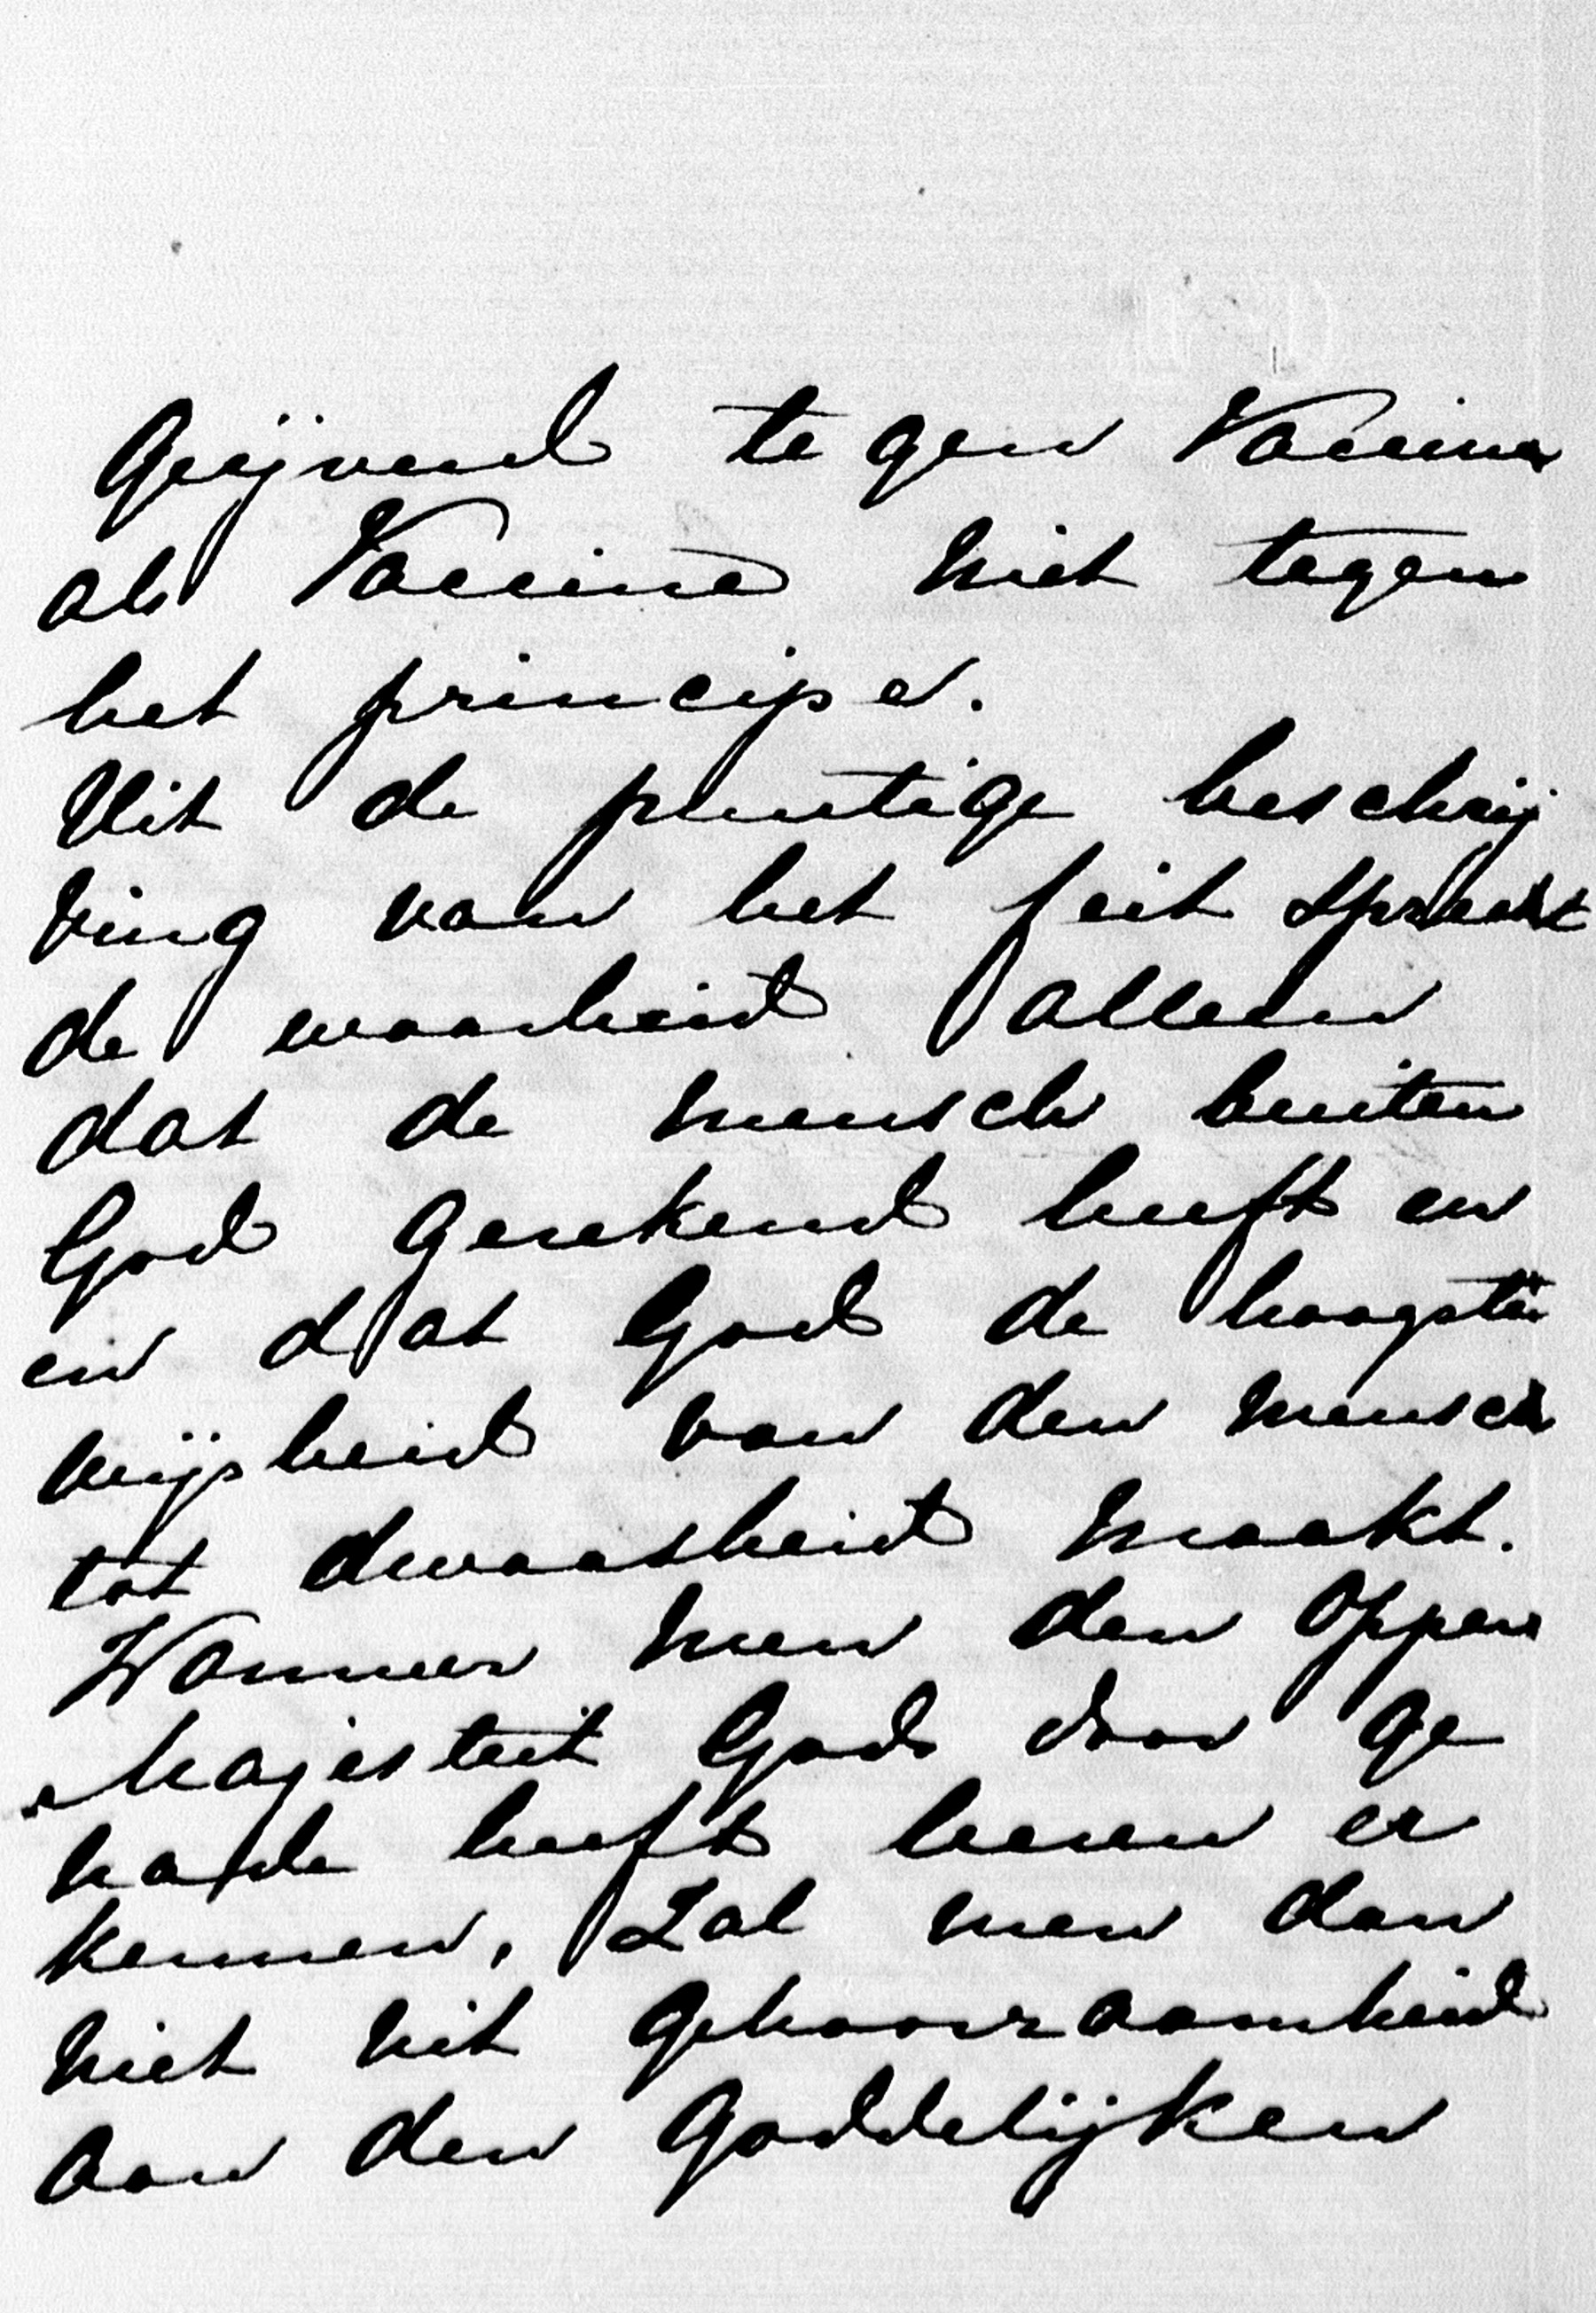 Grijvend tegen Vaccine
als Vaccine niet tegen
het principe.
Uit de puntige beschrij
ving van het feit spreekt
de waarheid alleen
dat de mensch buiten
God gerekend heeft en
en dat God de hoogste
wijsheid van den mensch
tot dwaasheid maakt.
Wanneer men den Oppers
Majesteit Gods door ge
nade heeft leeren er
kennen, Zal men dan
niet uit gehoorzaamheid
aan den Goddelijken